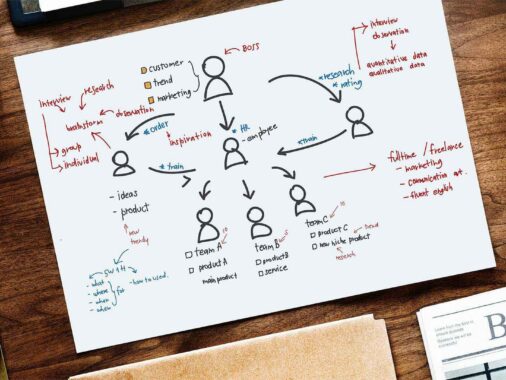 customer
trend
marketing
BOSS
interview
observation
quantitative data
qualitative data
* research
* rating
research
interview
observation
brainstorm
group
individual
* order
inspiration
* HR
- employee
* train
* train
fulltime / freelance
- marketing
- communication
- fluent english
- ideas
- product
new
trendy
5W1H
- what
- where
- when
for
- how to used.
team A
10
product A
main product
team B
5
product B
service
team C
10
product C
trend
new niche product
research
B